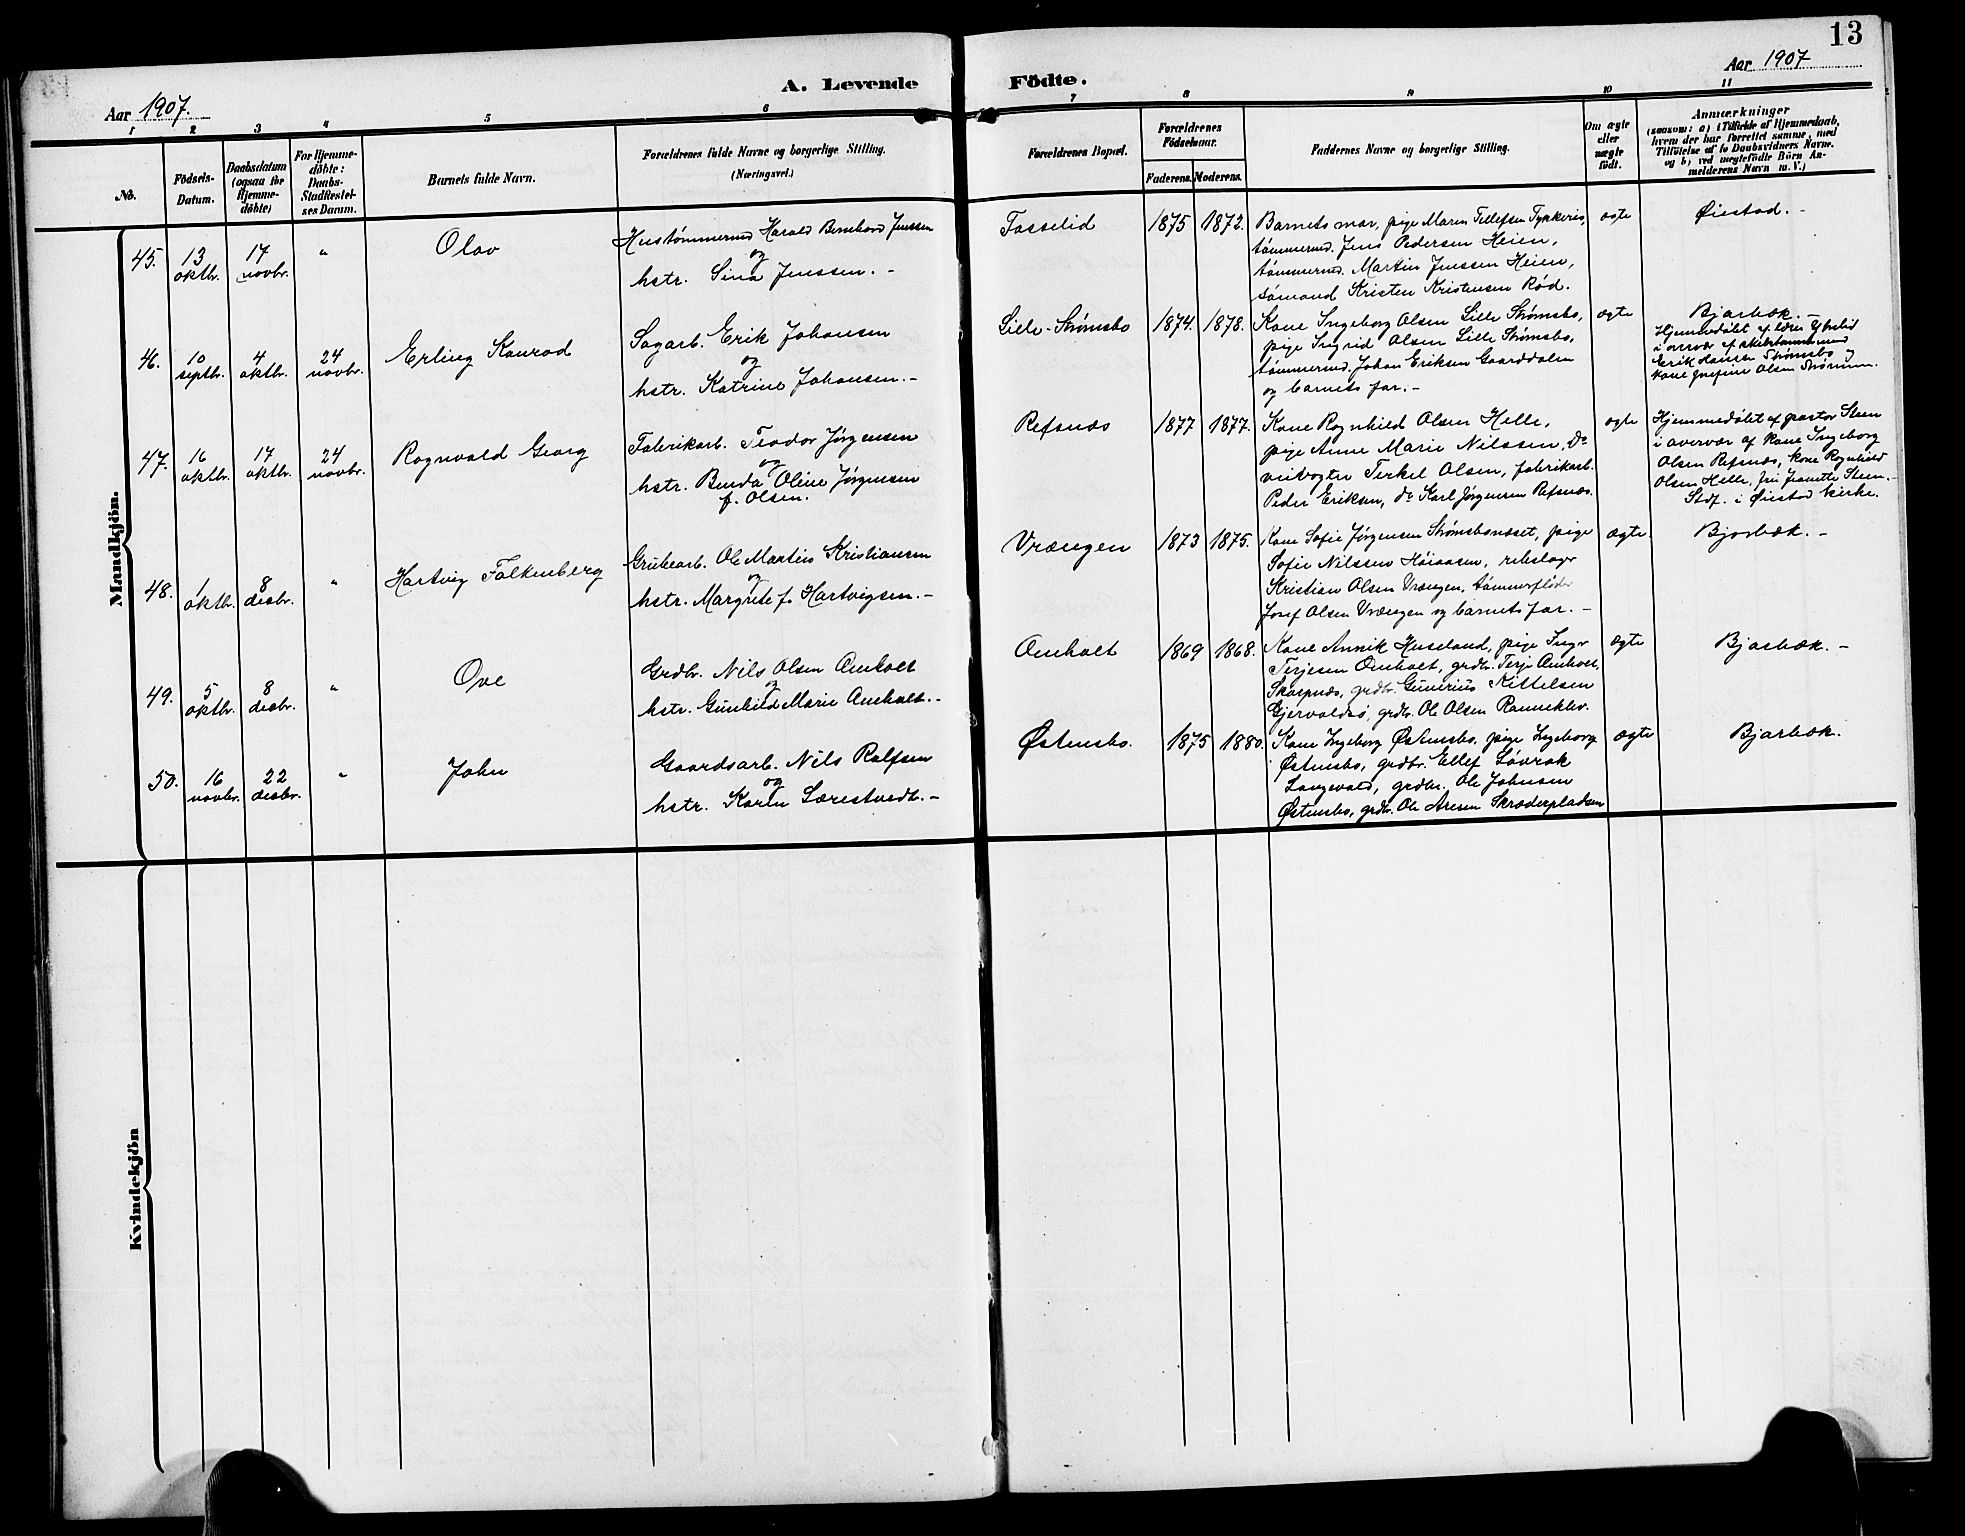 13
Aar 1907.
A. Levende Födte.
Aar 1907
1 2 3 4 5 6 7 8 9 10 11
No.
Födsels-
Datum.
Daabsdatum
(ogsaa for
Hjemme-
döbte)
For Hjemme-
döbte:
Daabs-
Stadfæstel-
ses Datum.
Barnets fulde Navn.
Forældrenes fulde Navne og borgerlige Stilling.
(Næringsvei.)
Forældrenes Bopæl.
Forældrenes
Födselsaar.
Faderens. Moderens.
Faddernes Navne og borgerlige Stilling.
Om ægte
eller
uægte
födt.
Anmærkninger
(saasom: a) i Tilfælde af Hjemmedaab,
hvem der har forrettet samme, med
Tilföielse af to Daabsvidners Navne,
og b) ved uægtefödte Börn An-
melderens Navn m. V.)
Mandkjön.
45.
13
oktbr.
17
novbr.
"
Olav
Hustømmermd Harald Bernhard Jenssen
og
hstr. Sina Jenssen. -
Fosselid
1875
1872.
Barnets mor, pige Maren Tellefsen Tykkeris,
tømmermd. Jens Pedersen Heien,
tømmermd. Martin Jenssen Heien,
sømand Kristen Kristensen Rød.
ægte
Øiestad. -
46.
10
septbr.
4
oktbr.
24
novbr.
Erling Konrad
Sagarb. Erik Johansen
og
hstr. Katrine Johansen. -
Lille-Strømsbo
1874.
1878.
Kone Ingeborg Olsen Lille Strømsbo,
pige Ingrid Olsen Lille Strømsbo,
tømmermd. Johan Eriksen Gaarddalen
og barnets far. -
ægte
Bjorbæk. -
Hjemmedøbt af
i overvær af skibstømmermand
Erik Hansen Strømsbo og
kone Olsen
47.
16
oktbr.
17
oktbr.
24
novbr.
Ragnvald Georg
Fabrikarb. Teodor Jørgensen
og
hstr. Benda Oline Jørgensen
f. Olsen.
Refsnæs
1877
1877.
Kone Ragnhild Olsen Helle,
pige Anne Marie Nilssen, do
veivogter Terkel Olsen, fabrikarb.
Peder Eriksen, do Karl Jørgensen Refsnæs.
ægte
Hjemmedøbt af pastor Steen
i overvær af kone Ingeborg
Olsen Refsnæs, kone Ragnhild
Olsen Helle, fru Jeanette Steen. -
Stdf. i Øiestad kirke.
48.
1
oktbr.
8
desbr.
"
Hartvig Falkenberg
Grubearb. Ole Martin Kristiansen
og
hstr. Margrete f. Hartvigsen. -
Vrængen
1873
1875.
Kone Sofie Jørgensen Strømsbonæset, pige
Sofie Nilssen Høiaasen, rebslager
Kristian Olsen Vrængen, tømmerfløder
Josef Olsen Vrængen og barnets far. -
ægte.
Bjorbæk. -
49.
5
oktbr.
8
desbr.
"
Ove
Grdbr. Nils Olsen Omholt
og
hstr. Gunhild Marie Omholt. -
Omholt
1869
1868.
Kone Annik Huseland, pige Inger
Terjesen Omholt, grdbr. Terje Omholt,
Skarpnæs, grdbr. Gunerius Kittelsen
Gjervoldsø, grdbr. Ole Olsen Ranneklev.
ægte
Bjorbæk. -
50.
16
novbr.
22
desbr.
"
John
Gaardsarb. Nils Rolfsen
og
hstr. Karen Lærestvedt. -
Østensbo.
1875
1880.
Kone Ingeborg Østensbo, pige Ingeborg
Østensbo, grdbr. Ellef Løvrak
Langevold, grdbr. Ole Johnsen
Østensbo, grdbr. Ole Aresen Skræderpladsen
ægte
Bjorbæk.
Kvindekjön